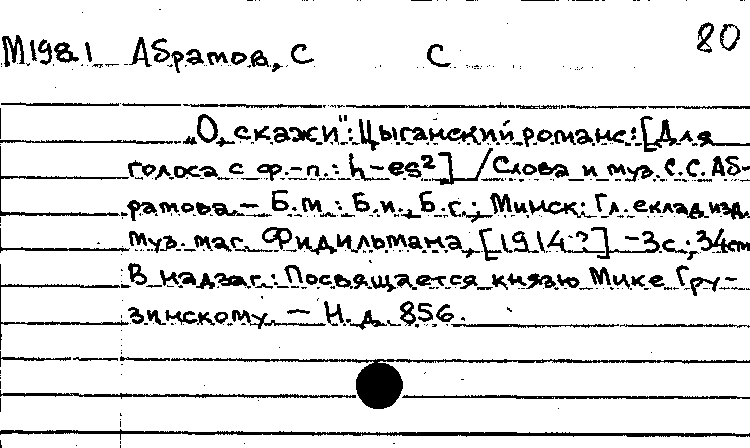 80
М198.1 Абрамов, С С
„О, скажи": Цыганский романс: [Для
голоса с ф.-п.: h-es²] /Слова и муз. С.С. Аб-
рамова. – Б.м.: Б.и., Б.г.; Минск: Гл. склад изд.
муз. маг. Фидильмана, [1914?]. – 3с.; 34см
В надзаг.: Посвящается князю Мике Гру-
зинскому. – Н. д. 856.